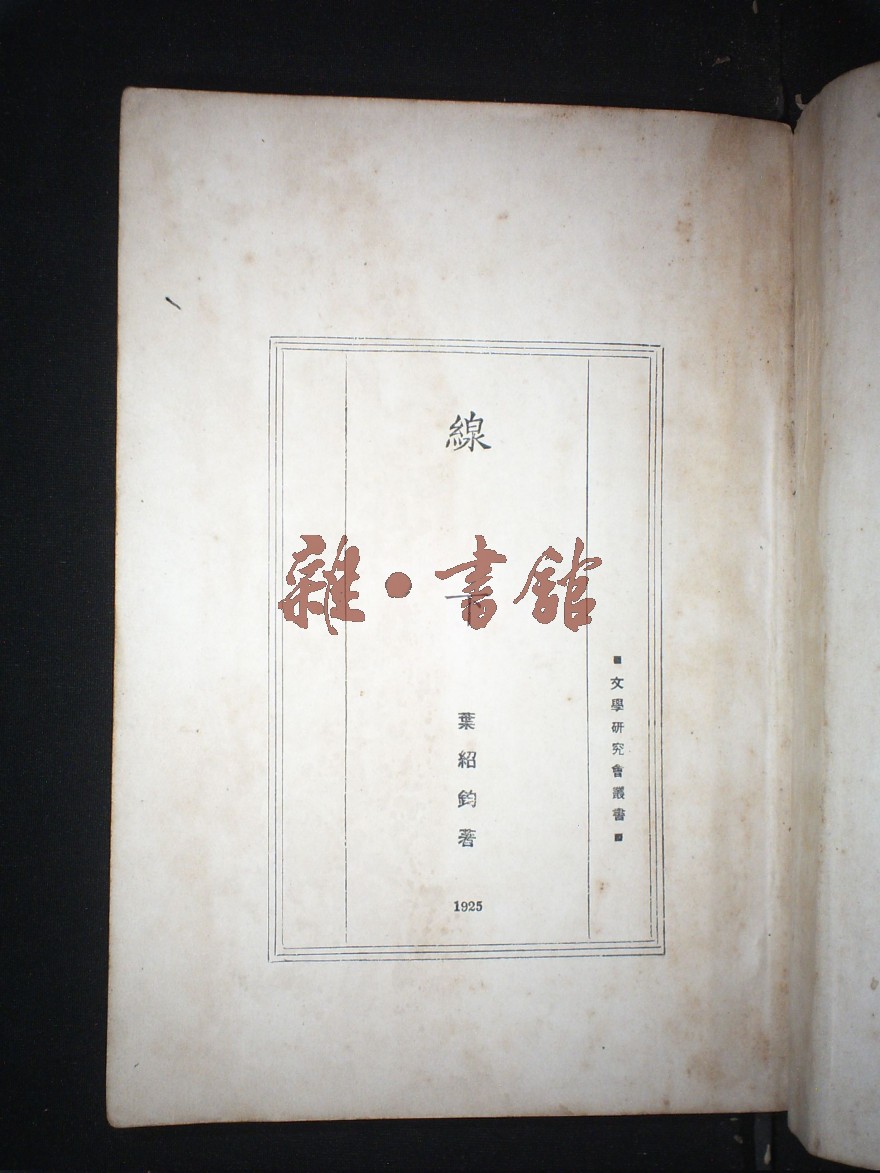 線
下
雜·書館
葉紹鈞著
1925
■文學研究會叢書■